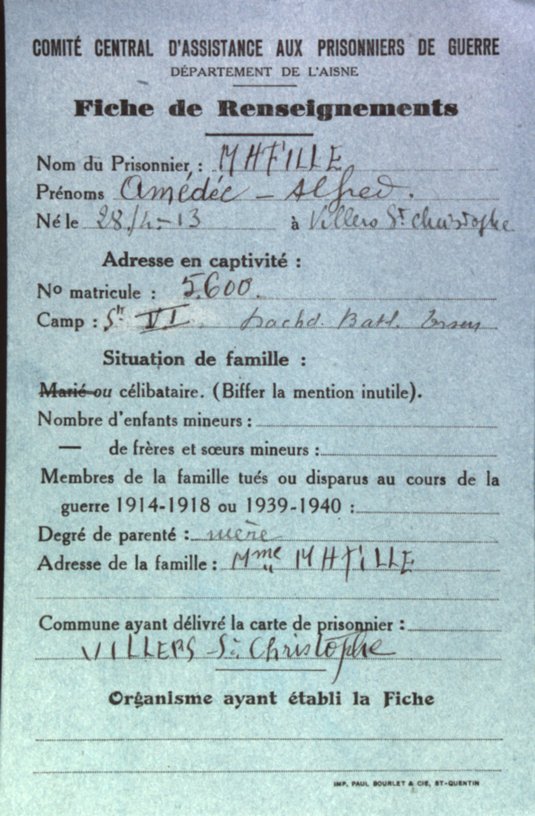 COMITÉ CENTRAL D'ASSISTANCE AUX PRISONNIERS DE GUERRE
DÉPARTEMENT DE L'AISNE
Fiche de Renseignements
Nom du Prisonnier : MAFILLE
Prénoms Amédée - Alfred.
Né le 28/4-13 à Villers St Christophe
Adresse en captivité :
No matricule : 5.600.
Camp : Str VI. Batl.
Situation de famille :
Marié ou célibataire. (Biffer la mention inutile).
Nombre d'enfants mineurs :
— de frères et sœurs mineurs :
Membres de la famille tués ou disparus au cours de la
guerre 1914-1918 ou 1939-1940 :
Degré de parenté : mère
Adresse de la famille : Mme MAFILLE
Commune ayant délivré la carte de prisonnier :
VILLERS St Christophe
Organisme ayant établi la Fiche
IMP. PAUL BOURLET & CIE, ST-QUENTIN